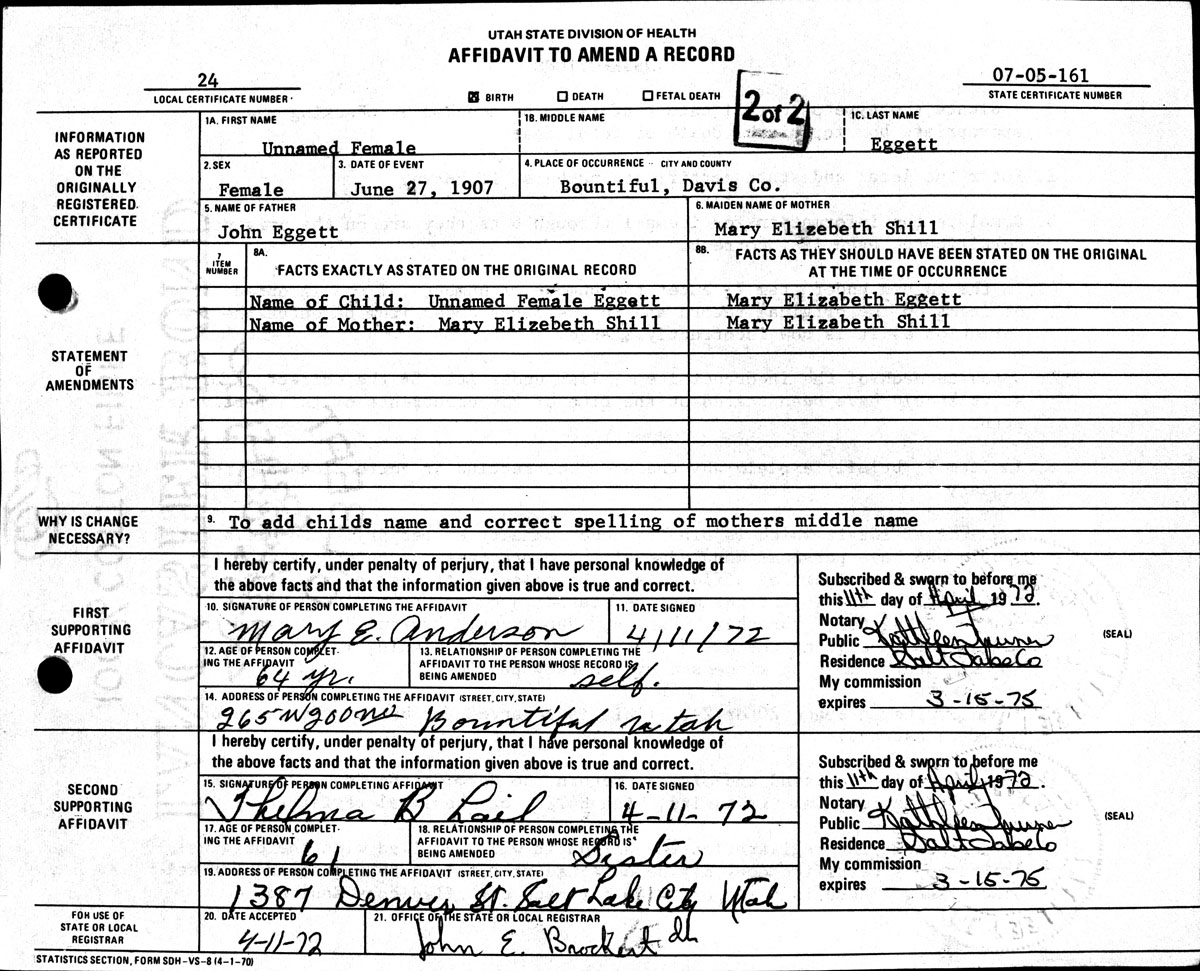 UTAH STATE DIVISION OF HEALTH
AFFIDAVIT TO AMEND A RECORD
24
LOCAL CERTIFICATE NUMBER
BIRTH DEATH FETAL DEATH
2 of 2
07-05-161
STATE CERTIFICATE NUMBER
INFORMATION AS REPORTED ON THE ORIGINALLY REGISTERED CERTIFICATE
1A. FIRST NAME 1B. MIDDLE NAME 1C. LAST NAME
Unnamed Female Eggett
2. SEX 3. DATE OF EVENT 4. PLACE OF OCCURRENCE - CITY AND COUNTY
Female June 27, 1907 Bountiful, Davis Co.
5. NAME OF FATHER 6. MAIDEN NAME OF MOTHER
John Eggett Mary Elizebeth Shill
STATEMENT OF AMENDMENTS
7 ITEM NUMBER
8A. FACTS EXACTLY AS STATED ON THE ORIGINAL RECORD
8B. FACTS AS THEY SHOULD HAVE BEEN STATED ON THE ORIGINAL AT THE TIME OF OCCURRENCE
Name of Child: Unnamed Female Eggett Mary Elizabeth Eggett
Name of Mother: Mary Elizebeth Shill Mary Elizabeth Shill
WHY IS CHANGE NECESSARY?
9. To add childs name and correct spelling of mothers middle name
FIRST SUPPORTING AFFIDAVIT
I hereby certify, under penalty of perjury, that I have personal knowledge of
the above facts and that the information given above is true and correct.
10. SIGNATURE OF PERSON COMPLETING THE AFFIDAVIT 11. DATE SIGNED
Mary E. Anderson 4/11/72
12. AGE OF PERSON COMPLETING THE AFFIDAVIT
64 yr.
13. RELATIONSHIP OF PERSON COMPLETING THE AFFIDAVIT TO THE PERSON WHOSE RECORD IS BEING AMENDED
self.
14. ADDRESS OF PERSON COMPLETING THE AFFIDAVIT (STREET, CITY, STATE)
265 W 200 no Bountiful Utah
Subscribed & sworn to before me
this 11th day of April 1972.
Notary
Public Kathleen
Residence Salt Lake Co
(SEAL)
My commission
expires 3-15-75
SECOND SUPPORTING AFFIDAVIT
I hereby certify, under penalty of perjury, that I have personal knowledge of
the above facts and that the information given above is true and correct.
15. SIGNATURE OF PERSON COMPLETING AFFIDAVIT 16. DATE SIGNED
Thelma B Lail 4-11-72
17. AGE OF PERSON COMPLETING THE AFFIDAVIT
61
18. RELATIONSHIP OF PERSON COMPLETING THE AFFIDAVIT TO THE PERSON WHOSE RECORD IS BEING AMENDED
Sister
19. ADDRESS OF PERSON COMPLETING THE AFFIDAVIT (STREET, CITY, STATE)
1387 Denver St. Salt Lake City Utah
Subscribed & sworn to before me
this 11th day of April 1972.
Notary
Public Kathleen
Residence Salt Lake Co
(SEAL)
My commission
expires 3-15-75
FOR USE OF STATE OR LOCAL REGISTRAR
20. DATE ACCEPTED 21. OFFICE OF THE STATE OR LOCAL REGISTRAR
4-11-72 John E. Brockert dh
STATISTICS SECTION, FORM SDH-VS-8 (4-1-70)